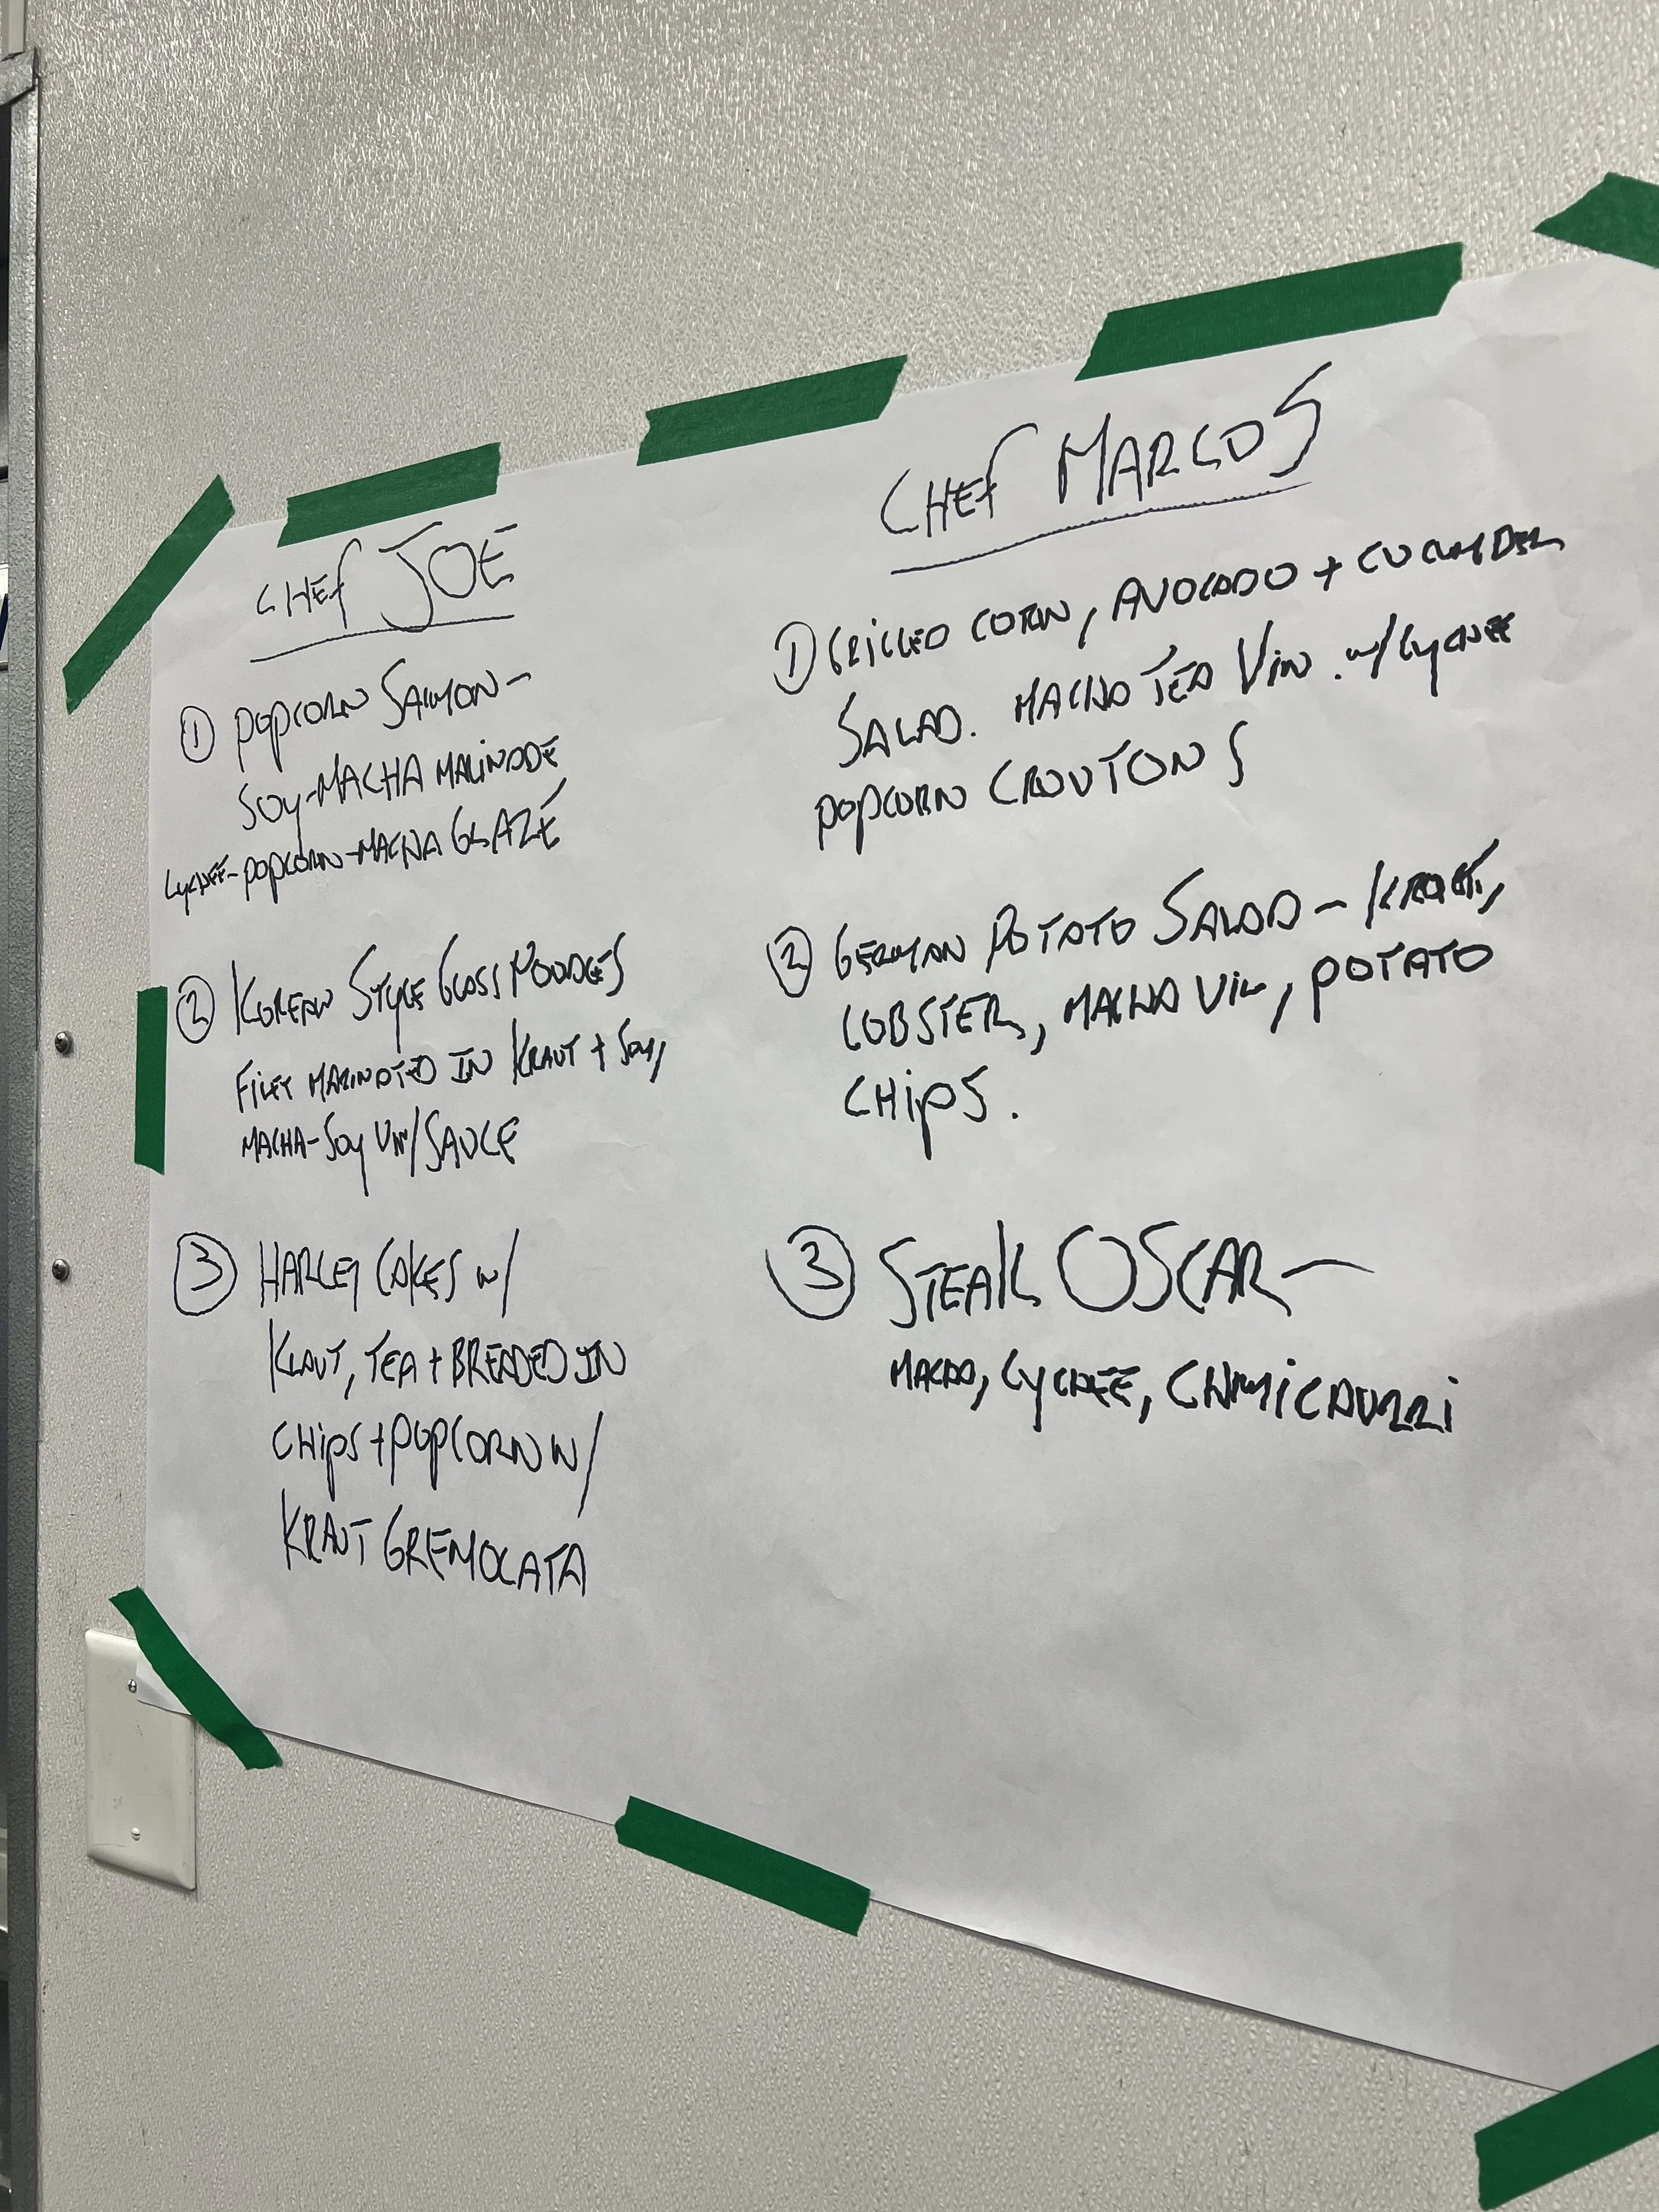 CHEF JOE
① POPCORN SALMON-
SOY-MACHA MARINADE
LYCHEE-POPCORN-MACHA GLAZE
② KOREAN STYLE GLASS NOODLES
FILET MARINATED IN KRAUT + SOY,
MACHA-SOY VIN/SAUCE
③ HARLEY CAKES W/
KRAUT, TEA + BREADED IN
CHIPS + POPCORN W/
KRAUT GREMOLATA
CHEF MARCOS
① GRILLED CORN, AVOCADO + CUCUMBER
SALAD. MACHA TEA VIN. W/ LYCHEE
POPCORN CROUTONS
② GERMAN POTATO SALAD - KRAUT,
LOBSTER, MACHA VIN, POTATO
CHIPS.
③ STEAK OSCAR-
MACHA, LYCHEE, CHIMICHURRI